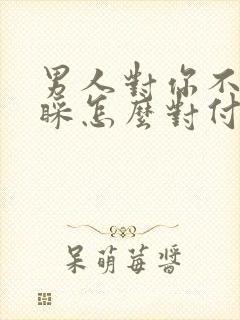 男人對你不
睬怎麼對付
呆萌莓醬